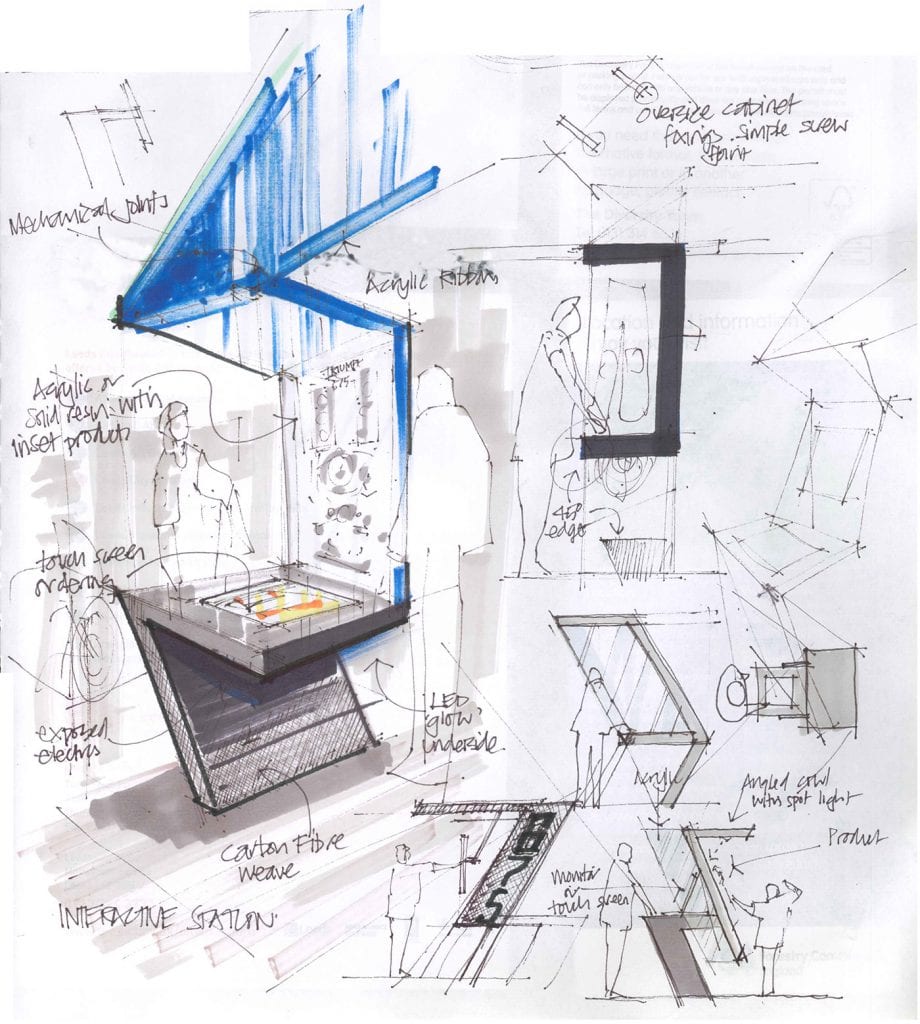 Mechanical joints
oversize cabinet
fixings. simple screw
Acrylic Ribbon
TRIUMPH
675
Acrylic or
solid resin with
inset products
touch screen
ordering
45°
edge
exposed
LED
glow
underside
Carbon Fibre
weave
INTERACTIVE STATION
675
Acrylic
Angled cowl
with spot light
Product
monitor
or
touch screen